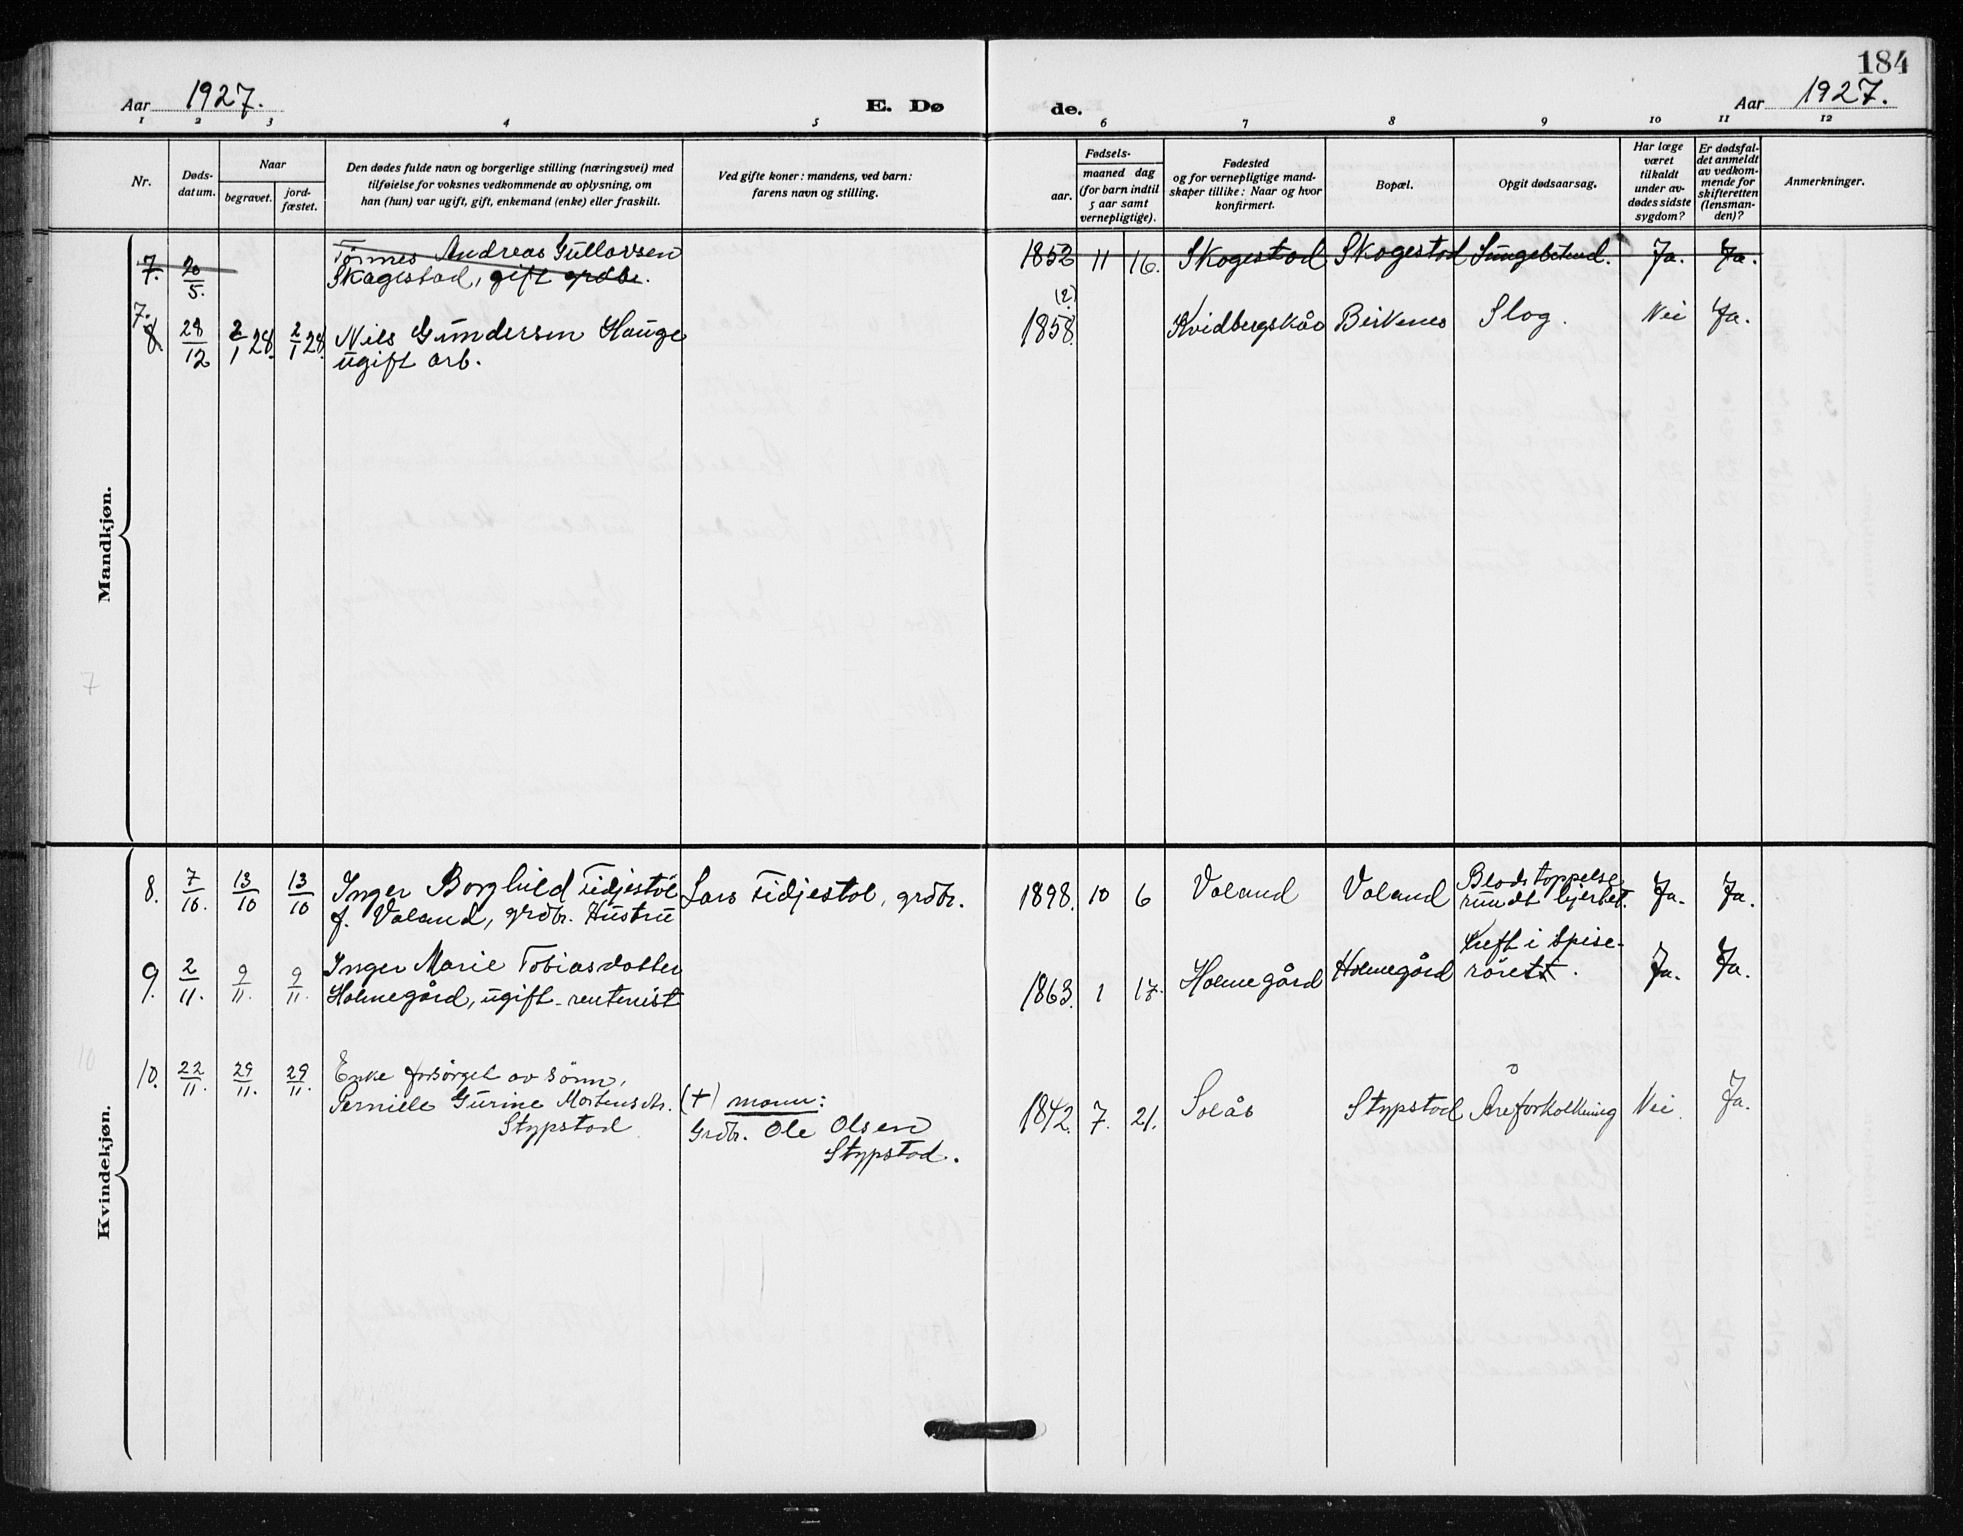 184
Aar 1927.
E. Døde.
Aar 1927.
1 2 3 4 5 6 7 8 9 10 11 12
Nr.
Døds-
datum.
Naar
begravet.
jord-
fæstet.
Den dødes fulde navn og borgerlige stilling (næringsvei) med
tilføielse for voksnes vedkommende av oplysning, om
han (hun) var ugift, gift, enkemand (enke) eller fraskilt.
Ved gifte koner: mandens, ved barn:
farens navn og stilling.
Fødsels-
aar.
maaned dag
(for barn indtil
5 aar samt
vernepligtige).
Fødested
og for vernepligtige mand-
skaper tillike: Naar og hvor
konfirmert.
Bopæl.
Opgit dødsaarsag.
Har læge
været
tilkaldt
under av-
dødes sidste
sygdom?
Er dødsfal-
det anmeldt
av vedkom-
mende for
skifteretten
(lensman-
den)?
Anmerkninger.
Mandkjøn.
7. 20/5. Tønnes Andreas Gullovsen 1852 11 16. Skogestad Skogestad Lungebetend. Ja. Ja.
Skagestad, gift grdbr.
7.
(2)
8 28/12 2/1 28. 2/1 28. Nils Gundersen Hauge 1858. Kvidbergskår Birkenes Slag. Nei Ja.
ugift arb.
7
Kvindekjøn.
8. 7/10. 13/10 13/10 Inger Borghild Tidjestöl Lars Tidjestöl, grdbr. 1898. 10 6 Valand Valand Blodstoppelse Ja. Ja.
f. Valand, grdbr. Hustru rundt hjertet.
9. 2/11. 9/11. 9/11. Inger Marie Tobiasdatter 1863. 1 17. Holmegård Holmegård Kreft i spise- Ja. Ja.
Holmegård, ugift rentenist röret.
10
10. 22/11 29/11. 29/11. Enke forsørget av sönn,
Pernille Gurine Mortensdtr. (+) mann: 1842. 7. 21. Solås Stypstad Åreforkalkning Nei. Ja.
Stypstad Grdbr. Ole Olsen
Stypstad.